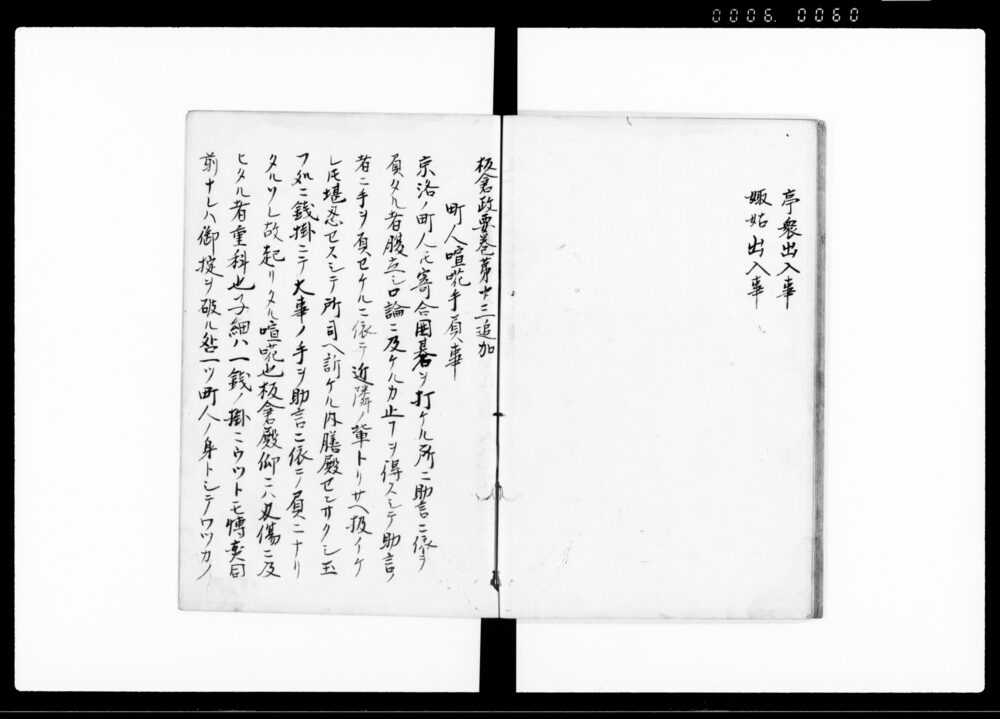 0006. 0060
亭衆出入事
娵姑出入事
板倉政要巻第十三追加
町人喧嘩手負事
京洛ノ町人𪜈寄合囲碁ヲ打ケル所ニ助言ニ依テ
負タル者腹立シ口論ニ及ケルカ止ヿヲ得スシテ助言ノ
者ニ手ヲ負セケルニ依テ近隣ノ輩トリサヘ扱イケ
レ𪜈堪忍セスシテ所司ヘ訴ケル内膳殿センサクシ玉
フ処ニ銭掛ニテ大事ノ手ヲ助言ニ依テ負ニナリ
タルヿシ故起リタル喧嘩也板倉殿仰ニハ刃傷ニ及
ヒタル者重科也子細ハ一銭ノ掛ニウツトモ博奕同
前ナレハ御掟ヲ破ル咎一ツ町人ノ身トシテワツカノ